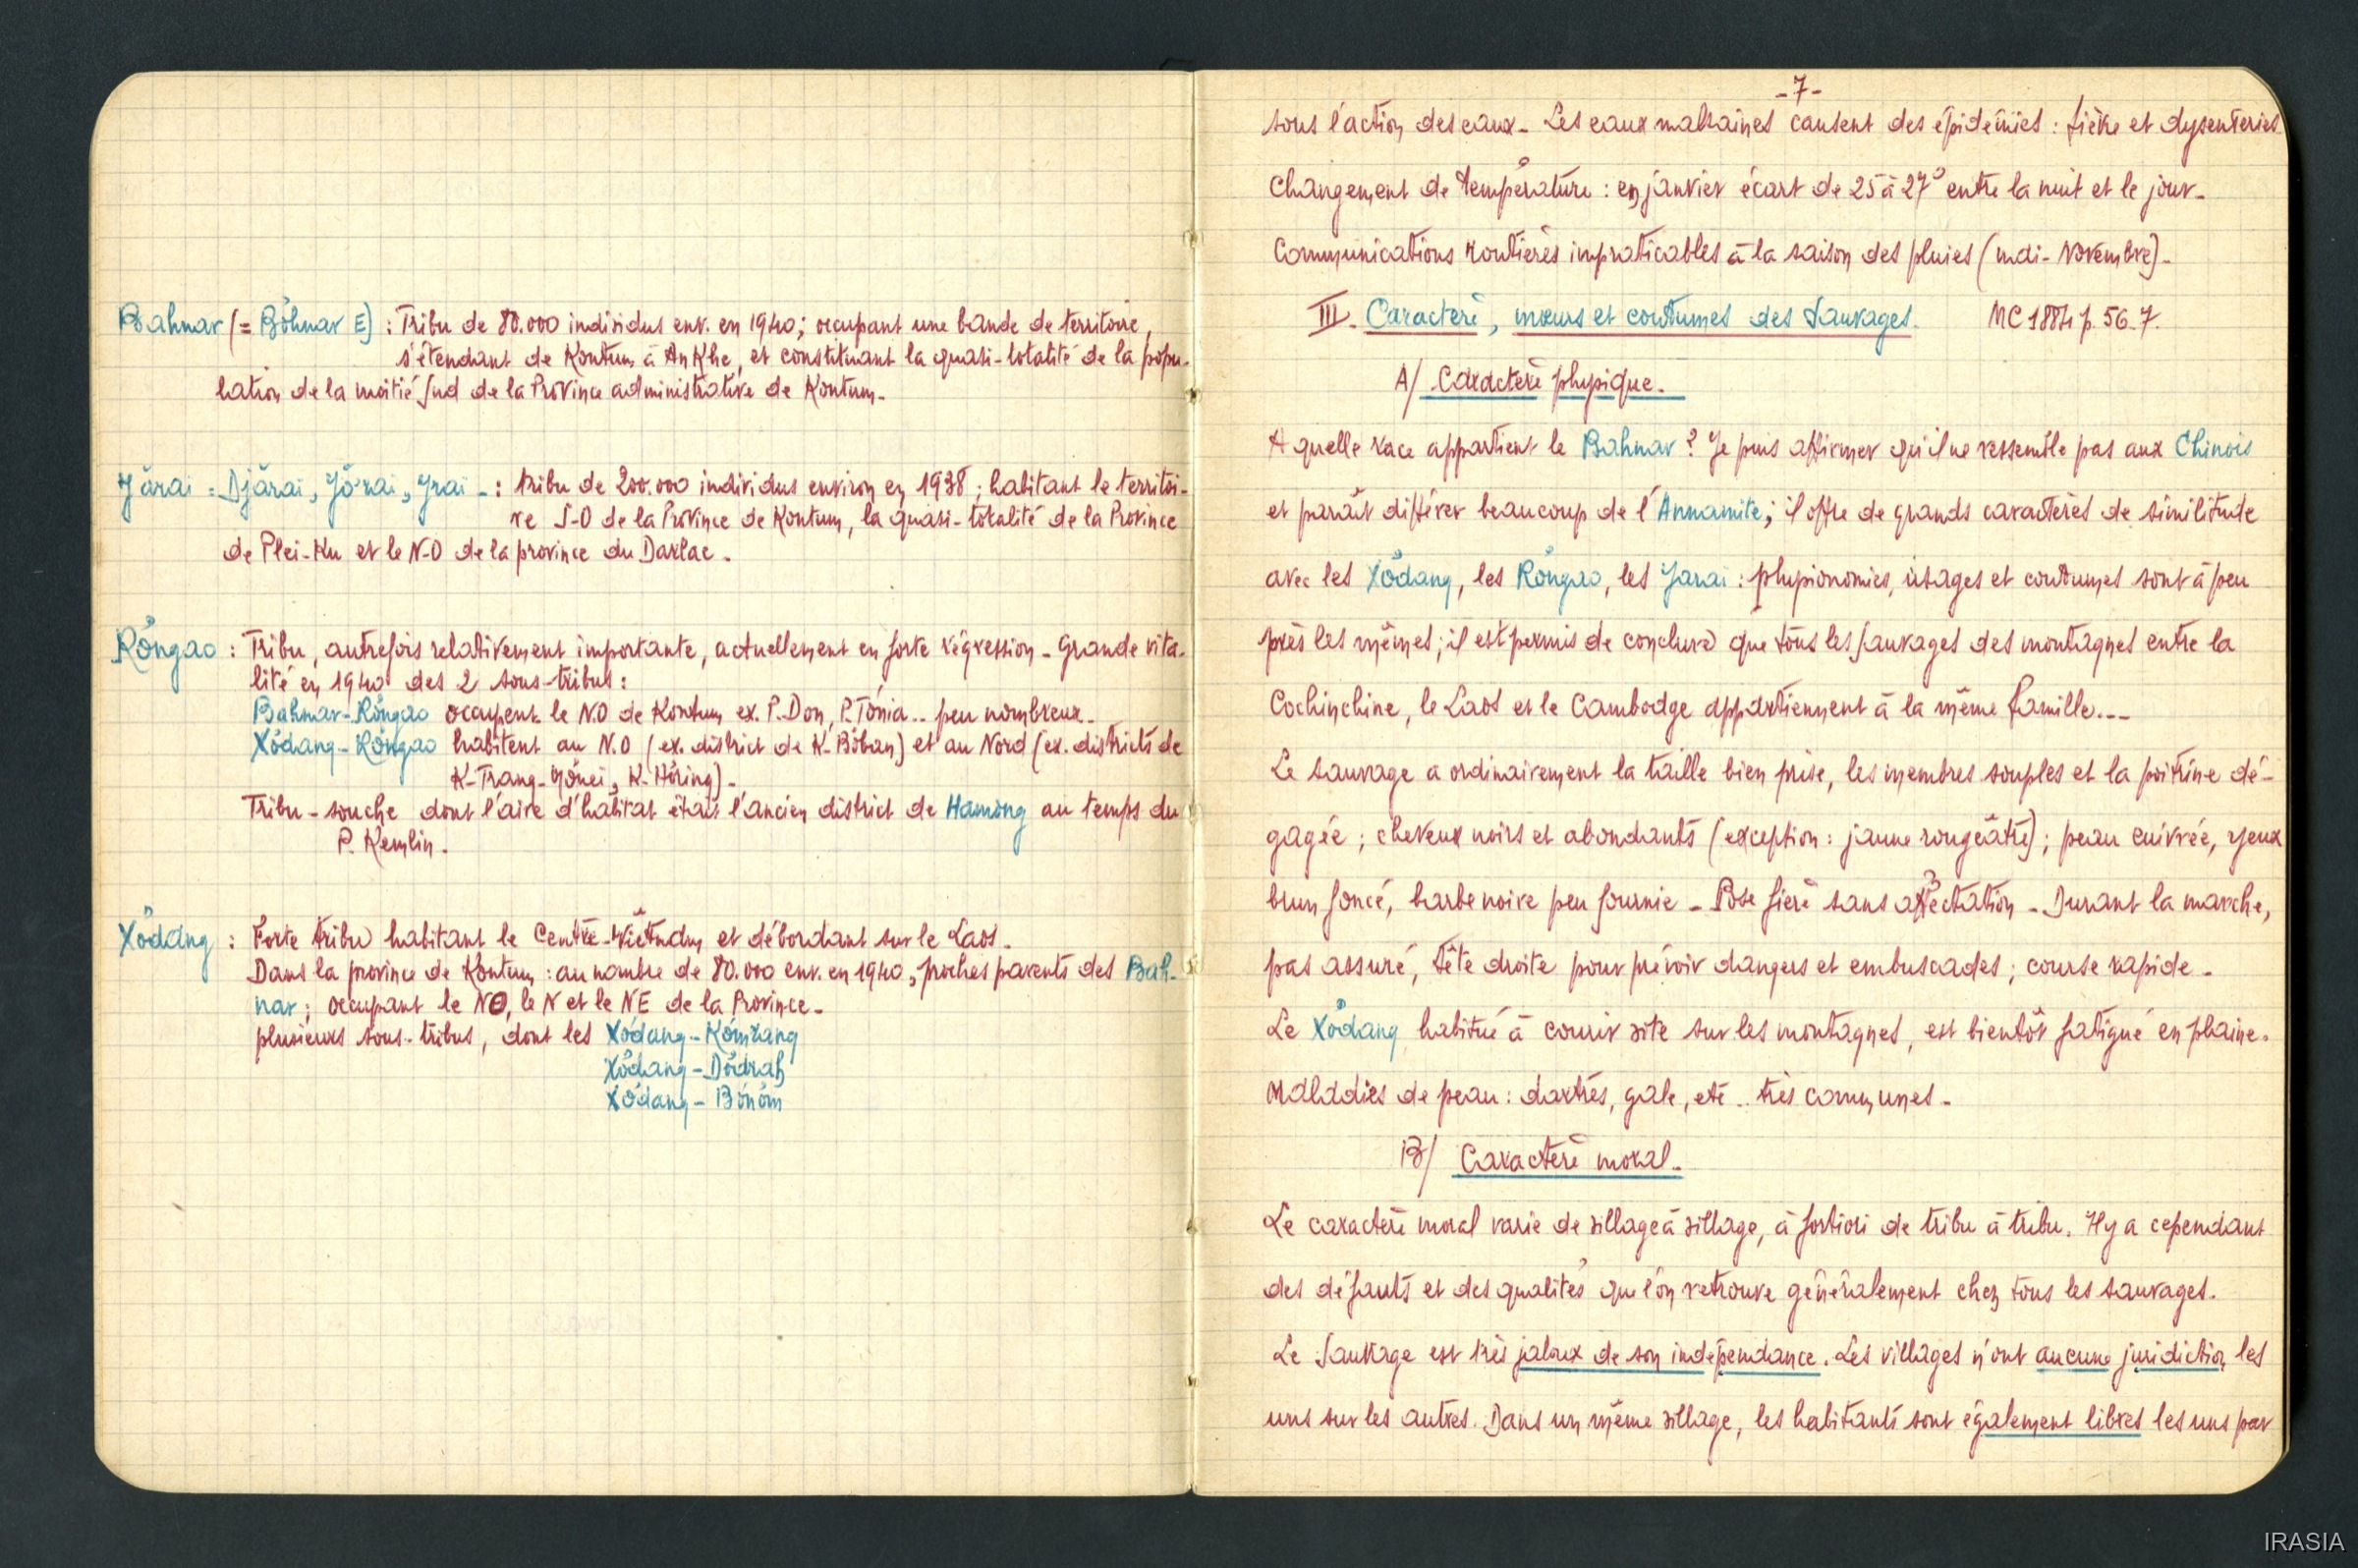 Bahnar (= Bŏhnar E) : Tribu de 80.000 individus env. en 1940 ; occupant une bande de territoire,
s'étendant de Kontum à AnKhe, et constituant la quasi-totalité de la popu-
lation de la moitié Sud de la Province administrative de Kontum.
Jărai = Djărai, Jŏ'rai, Jrai - : tribu de 200.000 individus environ en 1938 ; habitant le territoi-
re S-O de la Province de Kontum, la quasi-totalité de la Province
de Plei-Ku et le N-O de la province du Darlac.
Rŏngao : Tribu, autrefois relativement importante, actuellement en forte régression - Grande vita-
lité en 1940 des 2 sous-tribus :
Bahnar-Rŏngao occupent le N.O de Kontum ex. P. Don, P. Tŏnia.. peu nombreux.
Xŏdang-Rŏngao habitent au N.O (ex. district de K. Bŏban) et au Nord (ex. districts de
K-Trang-Jŏnei, K-Hŏring).
Tribu-souche dont l'aire d'habitat était l'ancien district de Hamong au temps du
P. Kemlin.
Xŏdang : Forte tribu habitant le Centre-Viêtnam et débordant sur le Laos.
Dans la province de Kontum : au nombre de 80.000 env. en 1940, proches parents des Bah-
nar ; occupant le NO, le N et le NE de la Province.
plusieurs sous-tribus, dont les Xŏdang-Kŏmrang
Xŏdang-Dŏdrah
Xŏdang-Bŏnŏm
-7-
sous l'action des eaux. Les eaux malsaines causent des épidémies : fièvre et dysenteries
Changement de température : en janvier écart de 25 à 27° entre la nuit et le jour.
Communications routières impraticables à la saison des pluies (mai-Novembre).
III. Caractère, mœurs et coutumes des Sauvages. MC 1884 p. 56-7.
A/ Caractère physique.
A quelle race appartient le Bahnar ? Je puis affirmer qu'il ne ressemble pas aux Chinois
et paraît différer beaucoup de l'Annamite ; il offre de grands caractères de similitude
avec les Xŏdang, les Rŏngao, les Jarai : physionomies, usages et coutumes sont à peu
près les mêmes ; il est permis de conclure que tous les Sauvages des montagnes entre la
Cochinchine, le Laos et le Cambodge appartiennent à la même famille...
Le sauvage a ordinairement la taille bien prise, les membres souples et la poitrine dé-
gagée ; cheveux noirs et abondants (exception : jaune rougeâtre) ; peau cuivrée, yeux
brun foncé, barbe noire peu fournie - Pose fière sans affectation - Durant la marche,
pas assuré, tête droite pour prévoir dangers et embuscades ; course rapide.
Le Xŏdang habitué à courir vite sur les montagnes, est bientôt fatigué en plaine.
Maladies de peau : dartres, gale, etc .. très communes.
B/ Caractère moral.
Le caractère moral varie de village à village, à fortiori de tribu à tribu. Il y a cependant
des défauts et des qualités que l'on retrouve généralement chez tous les sauvages.
Le Sauvage est très jaloux de son indépendance. Les villages n'ont aucune juridiction les
uns sur les autres. Dans un même village, les habitants sont également libres les uns par
IRASIA